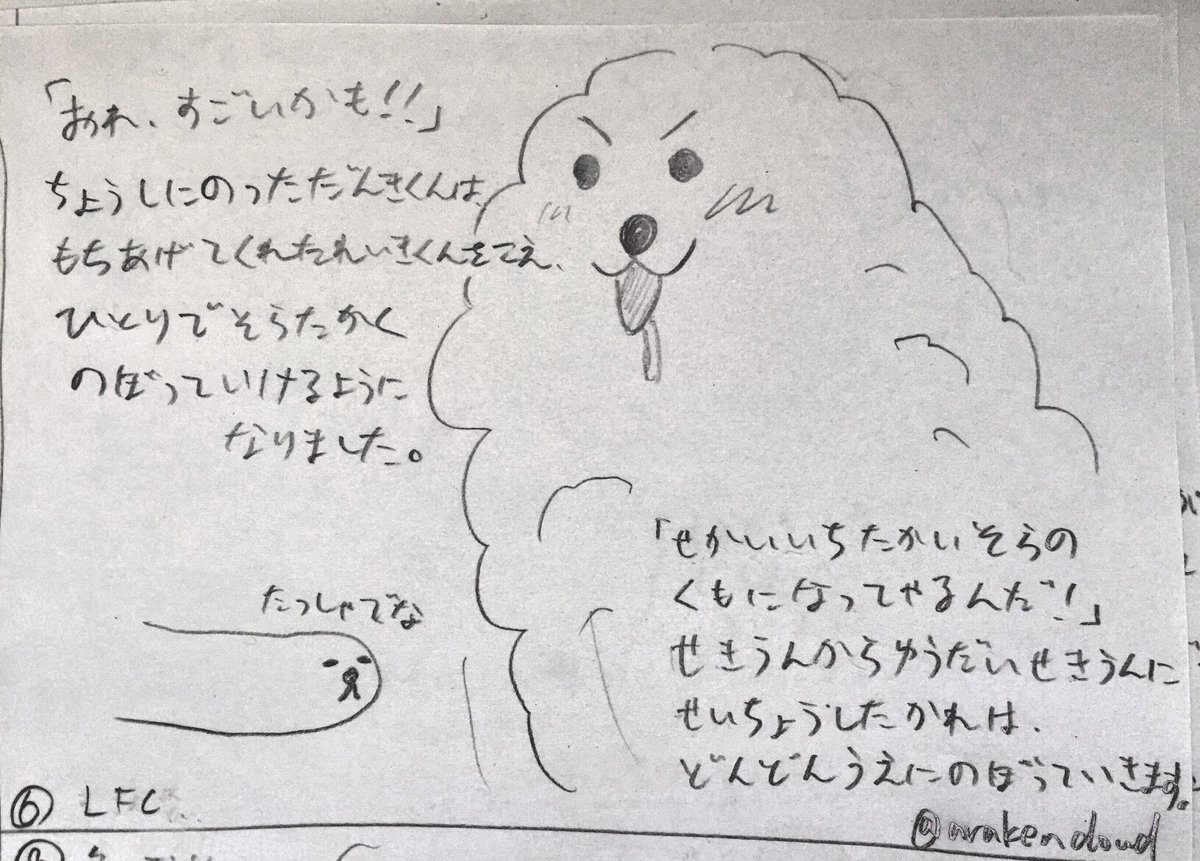 「おれ、すごいかも!!」
ちょうしにのっただんきくんは、
もちあげてくれたれいきくんをこえ、
ひとりでそらたかく
のぼっていけるように
なりました。
たっしゃでな
「せかいいちたかいそらの
くもになってやるんだ!」
せきうんからゆうだいせきうんに
せいちょうしたかれは、
どんどんうえにのぼっていきます。
⑥ LFC
@arakencloud